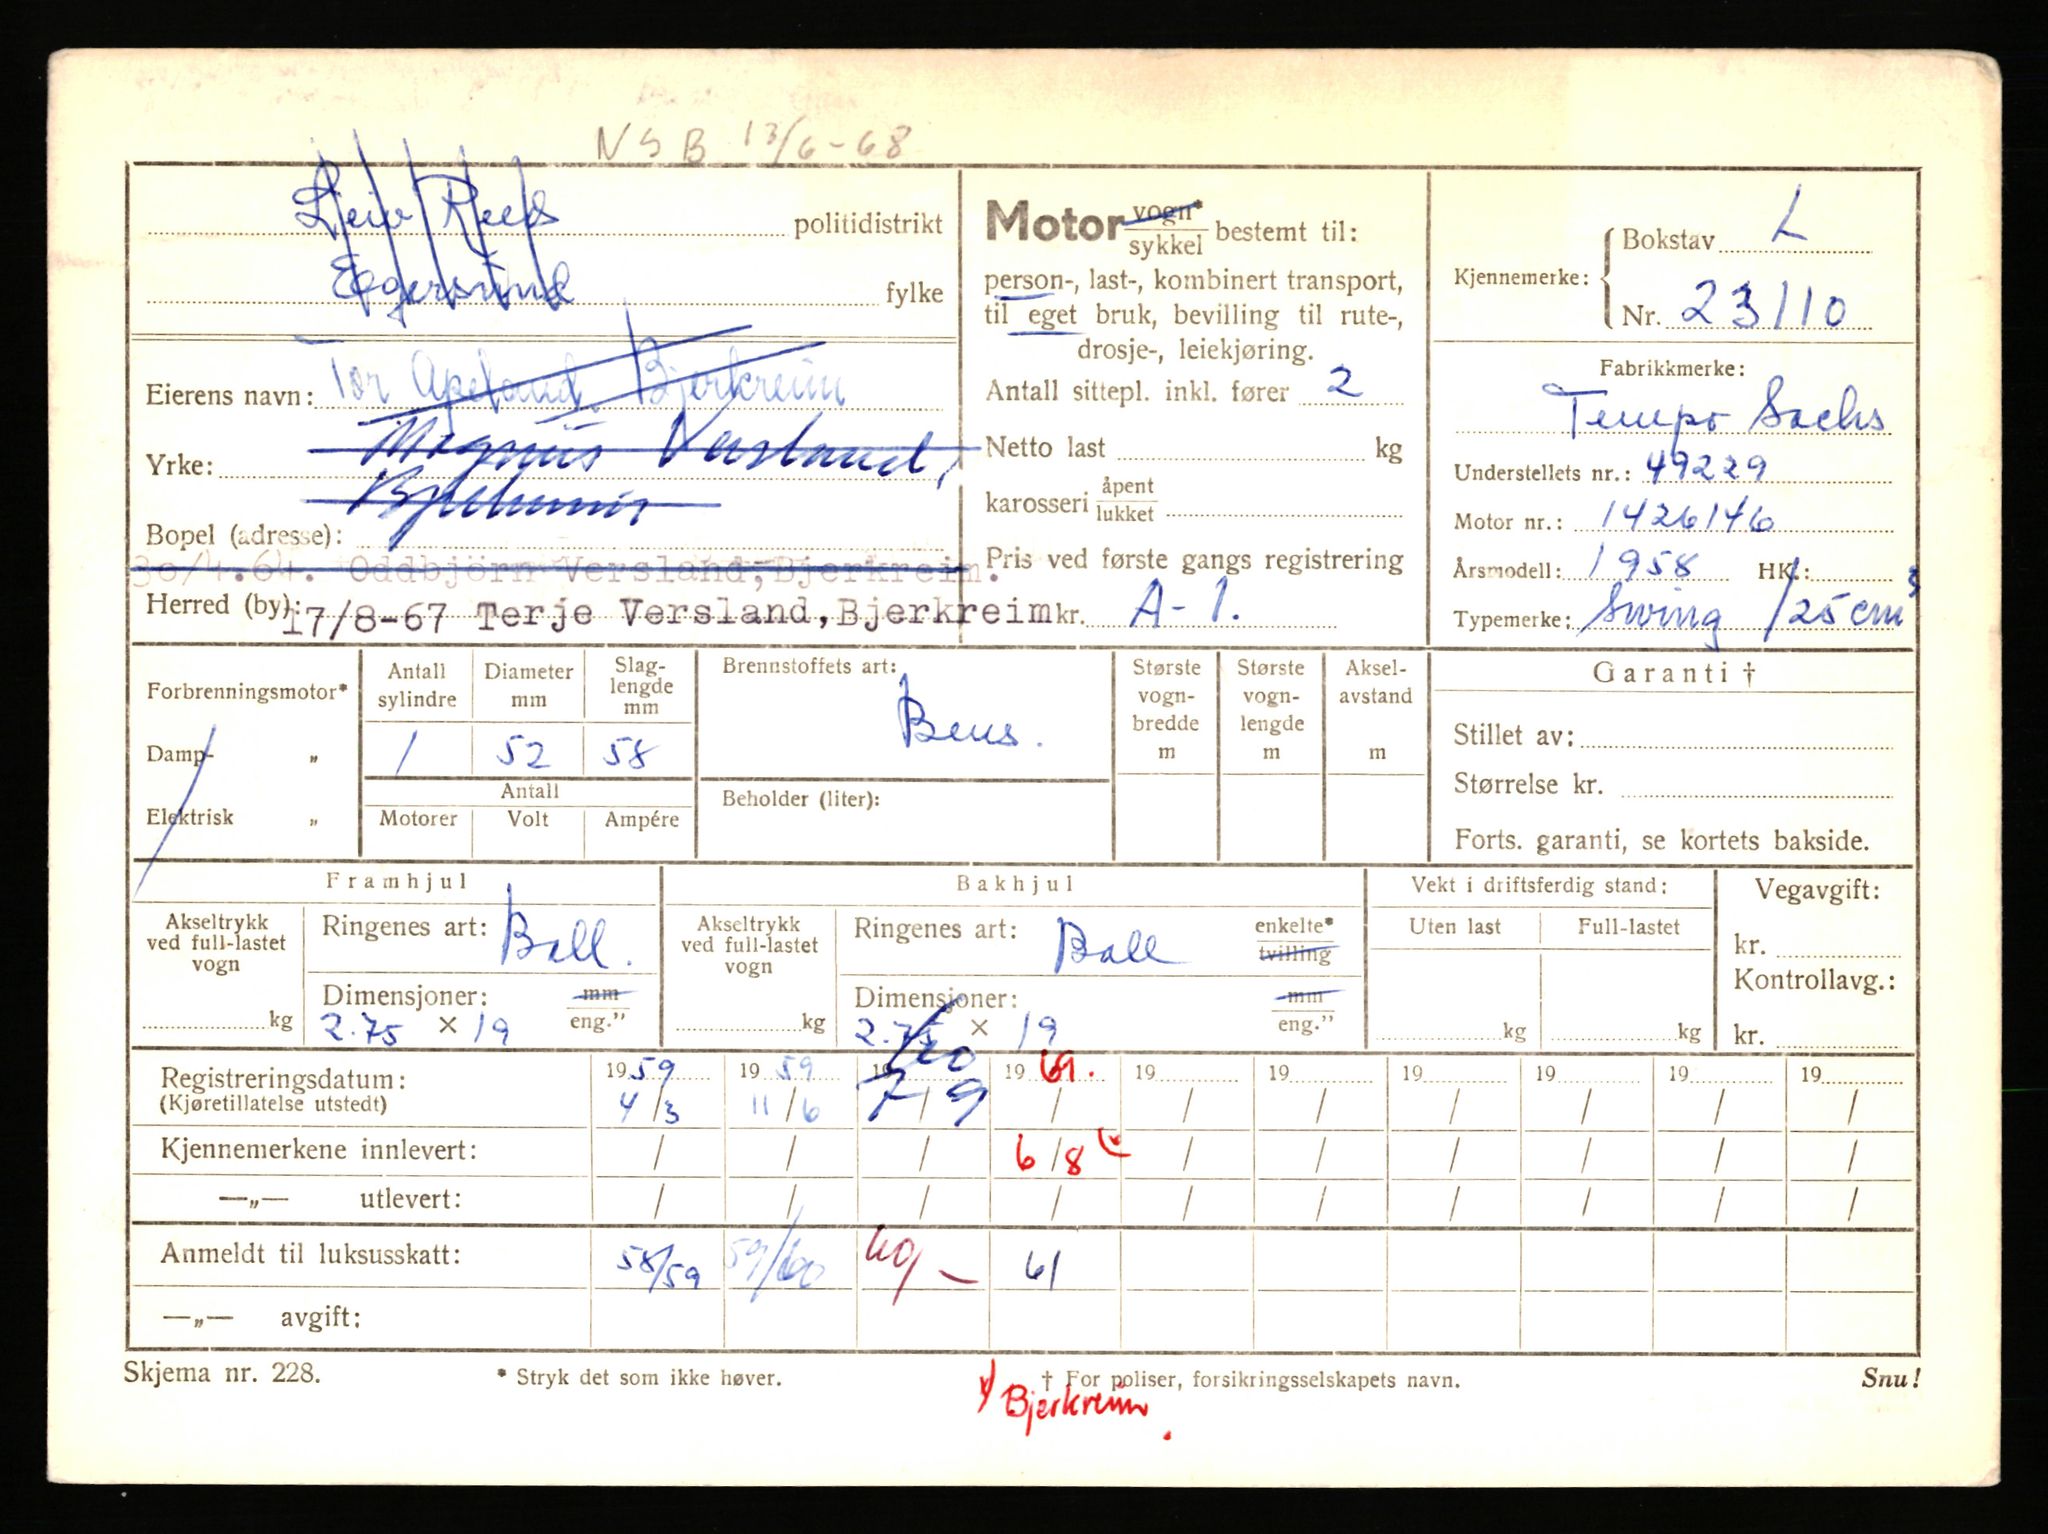 NSB 13/6-68
Leiv Reed politidistrikt
Egersund fylke
Eierens navn: Tor Apeland. Bjerkreim
Yrke: Magnus Versland,
Bjerkreim
Bopel (adresse):
30/4.64. Oddbjörn Versland, Bjerkreim.
Herred (by): 17/8-67 Terje Versland, Bjerkreim
Motor vogn*
sykkel bestemt til:
person-, last-, kombinert transport,
til eget bruk, bevilling til rute-,
drosje-, leiekjøring.
Antall sittepl. inkl. fører 2
Netto last kg
karosseri åpent
lukket
Pris ved første gangs registrering
kr. A-1.
Kjennemerke: Bokstav L
Nr. 23110
Fabrikkmerke:
Tempo Sachs
Understellets nr.: 49229
Motor nr.: 1426146
Årsmodell: 1958 HK.:
Typemerke: Swing 125 cm³
Forbrenningsmotor*
Damp- „
Elektrisk „
Antall sylindre Diameter mm Slag-lengde mm
1 52 58
Antall
Motorer Volt Ampére
Brennstoffets art:
Bens.
Beholder (liter):
Største vogn-bredde m
Største vogn-lengde m
Aksel-avstand m
Garanti †
Stillet av:
Størrelse kr.
Forts. garanti, se kortets bakside.
Framhjul
Akseltrykk ved full-lastet vogn kg
Ringenes art: Ball.
Dimensjoner: mm
2.75 × 19 eng."
Bakhjul
Akseltrykk ved full-lastet vogn kg
Ringenes art: Ball enkelte*
tvilling
Dimensjoner: mm
2.75 × 19 eng."
Vekt i driftsferdig stand:
Uten last Full-lastet
kg kg
Vegavgift:
kr.
Kontrollavg.:
kr.
Registreringsdatum: 1959 1959 1960 1961. 19 19 19 19 19 19
(Kjøretillatelse utstedt) 4/3 11/6 7/9 / / / / / / /
Kjennemerkene innlevert: / / / 6/8 / / / / / /
—„— utlevert: / / / / / / / / / /
Anmeldt til luksusskatt: 58/59 59/60 60/- 61
—„— avgift:
Skjema nr. 228. * Stryk det som ikke høver. † For poliser, forsikringsselskapets navn. Snu!
Bjerkreim.